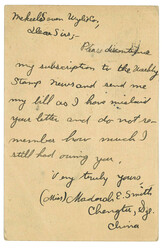 Mekeel Severn Wylie Co,
Dear Sirs,-
Please discontinue
my subscription to the Weekly
Stamp News and send me
my bill as I have mislaid
your letter and do not re-
member how much I
still had owing you.
Very truly yours,
(Miss) E. Smith
Chengtu, Sze.
China